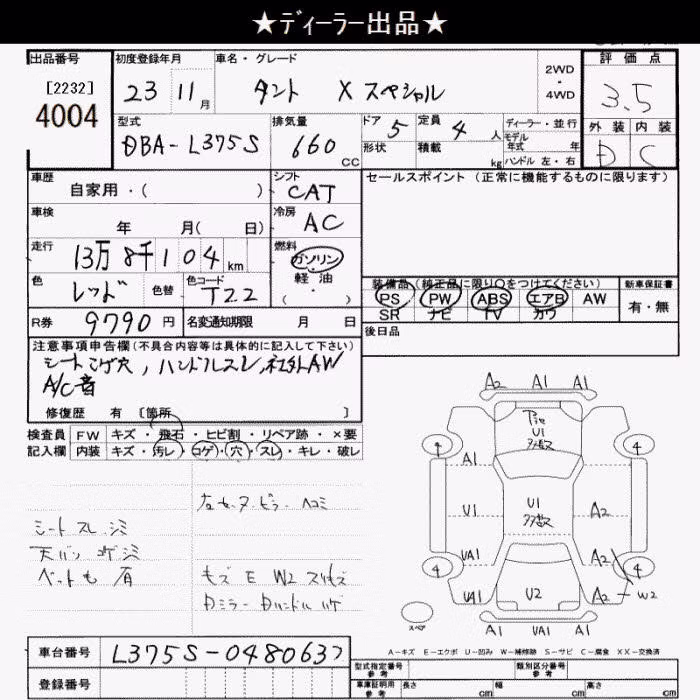 ★ディーラー出品★
出品番号
[2232]
4004
初度登録年月
23 11月
車名・グレード
タント X スペシャル
2WD
・
4WD
評価点
3.5
外装 内装
D C
型式
DBA-L375S
排気量
660 CC
ドア 5
形状
定員 4 人
積載 kg
ディーラー・並行
モデル
年式 年
ハンドル 左・右
車歴
自家用・( )
シフト
CAT
セールスポイント (正常に機能するものに限ります)
車検
年 月( 日)
冷房
AC
走行
13万8千104 km
燃料
ガソリン
・
軽油
( )
色
レッド
色替
色コード
T22
装備品(純正品に限り○をつけてください)
PS PW ABS エアB AW
SR ナビ TV カワ
新車保証書
有・無
R券
9790円
名変通知期限 月 日
後日品
注意事項申告欄(不具合内容等は具体的に記入して下さい)
シートコゲ穴, ハンドルスレ, 社外AW
A/C音
修復歴 有 〔箇所 〕
検査員
記入欄
FW キズ・飛石・ヒビ割・リペア跡・×要
内装 キズ・汚レ・コゲ・穴・スレ・キレ・破レ
シートスレ シミ
天バリ コゲ シミ
有
E W2
A2 A1 A1
U1
A1
U1
U1
A2
UA1
UA1
A2
UA1
U2
A2 - W2
4 4 4
スペア
A1 UA1 A1
A-キズ E-エクボ U-凹み W-補修跡 S-サビ C-腐食 XX-交換済
車台番号
L375S-0480637
登録番号
型式指定番号
参考
類別区分番号
参考
車庫証明用
参考
長さ cm 幅 cm 高さ cm